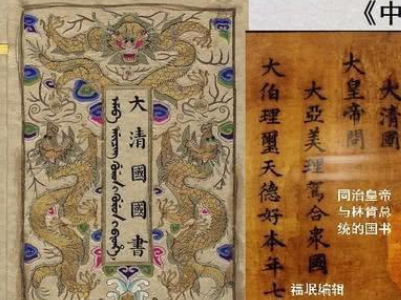 大清國國書
《中
大清國
大皇帝問
大亞美理駕合衆國
大伯理璽天德好本年七
同治皇帝
与林肯总
统的国书
编辑